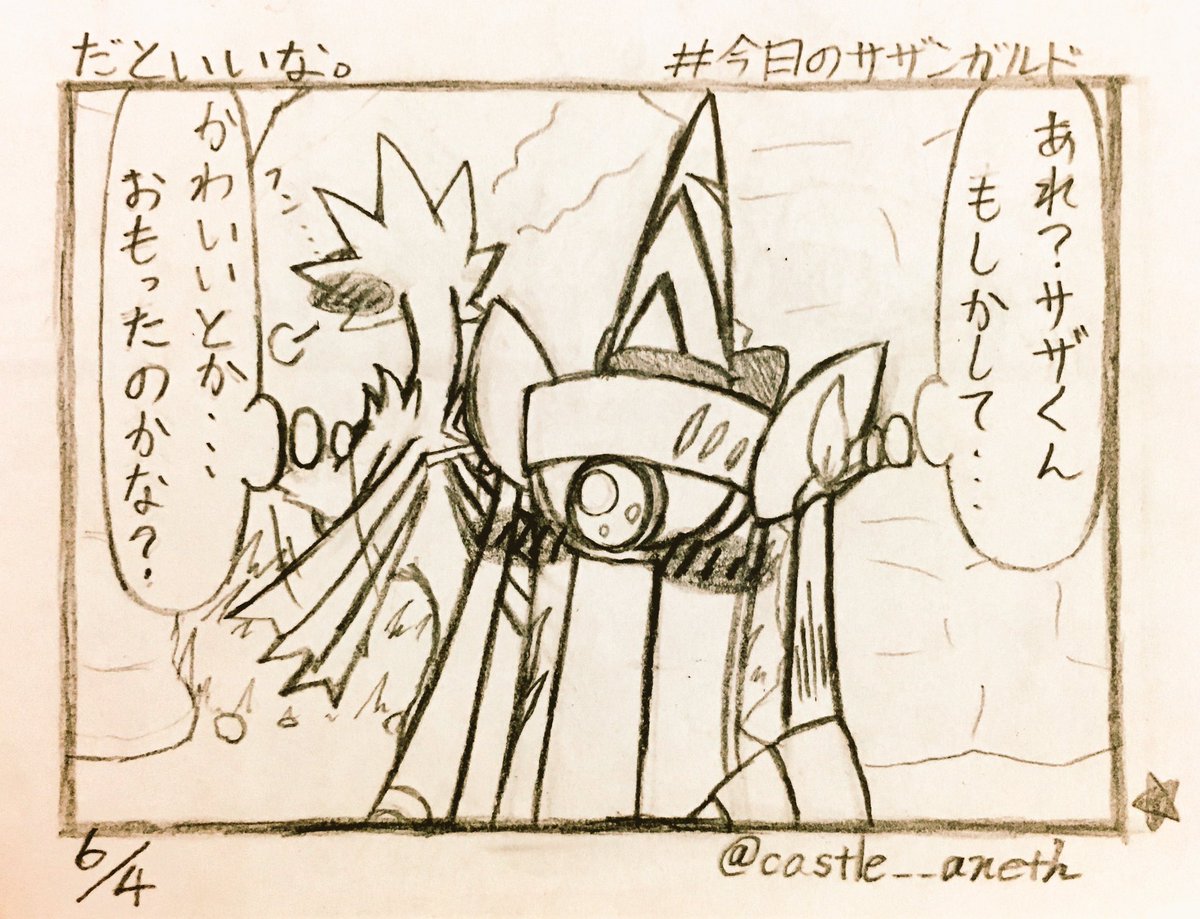 だといいな。
#今日のサザンガルド
あれ?サザくん
もしかして・・・
かわいいとか・・・
おもったのかな?
フン・・・
6/4
@castle__aneth